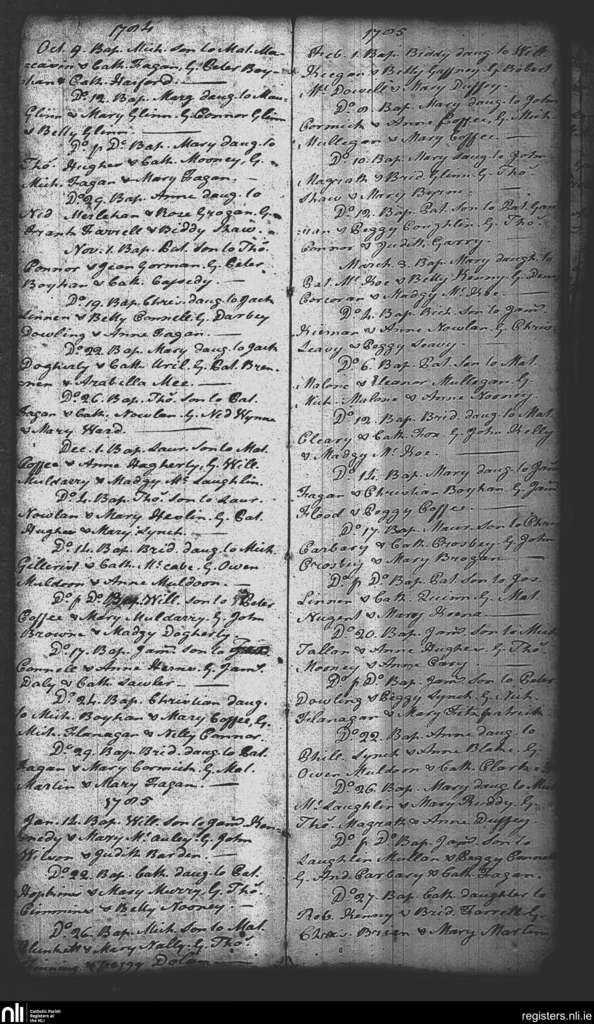 1784
Oct. 9. Bap. Mich. Son to Mat. Ma-
& Cath. Fagan. G. Peter Boy-
han & Cath.
Do. 12. Bap. Mary daug. to
Glinn & Mary Glinn. G. Connor Glinn
& Betty Glinn.
Do. p. Do. Bap. Mary daug. to
Thos. Hughes & Cath. Mooney, G.
Mich. Fagan & Mary Fagan.
Do. 29. Bap. Anne daug. to
Ned & Rose Grogan, G.
Frank Farrell & Biddy Shaw.
Nov. 1. Bap. Pat. Son to Thos.
Connor & Jean Gorman. G. Peter
Boyhan & Cath. Cassedy.
Do. 19. Bap. Chris. daug. to Jack
Linnen & Betty Connell G. Darbey
Dowling & Anne Fagan.
Do. 22. Bap. Mary daug. to Jack
Dogherty & Cath. G. Pat. Bren-
nen & Arabella Mee.
Do. 26. Bap. Thos. Son to Pat.
Fagan & Cath. Nowlan. G. Ned Wynne
& Mary Ward.
Dec. 1. Bap. Laur. Son to Mat.
Coffee & Anne Hagherty, G. Will.
Muldarry & Madgy Mc. Laughlin.
Do. 4. Bap. Thos. Son to Laur.
Nowlan & Mary G. Pat.
Hughes & Mary Lynch.
Do. 14. Bap. Brid. daug. to Mich.
& Cath. Mc. cabe. G. Owen
Muldoon & Anne Muldoon.
Do. p. Do. Bap. Will. Son to Peter
Coffee & Mary Muldarry. G. John
Browne & Madgy Dogherty
Do. 17. Bap. Jams. Son to
Connell & Anne G. Jams.
Daly & Cath. Lawler.
Do. 24. Bap. Christian daug.
to Mich. Boyhan & Mary Coffee, G.
Mich. Flanagan & Nelly Connor.
Do. 29. Bap. Brid. daug. to Pat.
Fagan & Mary Cormick, G. Mat.
Martin & Mary Fagan.
1785
Jan. 14. Bap. Will. Son to Jams. Ken-
nedy & Mary Mc. auley. G. John
Wilson & Judith Barden.
Do. 22. Bap. Cath. daug. to Pat.
Hopkins & Mary Murry, G. Thos.
Cimmins & Betty Nooney.
Do. 26. Bap. Mich. Son to Mat.
Plunkett & Mary Nally. G. Thos.
& Peggy Dolan
1785
Feb. 1. Bap. Biddy daug. to Will.
Keegan & Betty Gaffney. G. Robert
Mc. Dowell & Mary Duffey.
Do. 8. Bap. Mary daug. to John
Cormick & Anne Coffee, G. Mich.
Mullegan & Mary Coffee.
Do. 10. Bap. Mary daug. to John
Magrath & Brid. Glenn. G. Thos.
Shaw & Mary Byrne.
Do. 12. Bap. Pat. Son to Pat. Gan-
nan & Peggy Coughlin. G. Thos.
Connor & Judith Garry.
March 3. Bap. Mary daught. to
Pat. Mc. Kee & Betty Kenny. G. Denis
Corcoran & Madgy Mc. Kee.
Do. 4. Bap. Rich. Son to Jams.
Kiernan & Anne Nowlan. G. Chris.
Leavy & Peggy Leavy.
Do. 6. Bap. Pat. Son to Mat.
Malone & Eleanor Mullegan. G.
Mich. Malone & Anne Nooney
Do. 12. Bap. Brid. daug. to Mat.
Cleary & Cath. Fox G. John Kelly
& Madgy Mc. Kee.
Do. 14. Bap. Mary daug. to Jams.
Fagan & Christian Boyhan G. Jams.
Flood & Peggy Coffee.
Do. 17. Bap. Maur. Son to Chris.
Carbary & Cath. Crosbey G. John
Crosbey & Mary Brogan.
Do. p. Do. Bap. Pat. Son to Jos.
Linnen & Cath. Quinn. G. Mat.
Nugent & Mary Keena
Do. 20. Bap. Jams. Son to Mich.
Tallon & Anne Hughes. G. Thos.
Mooney & Anne Cary
Do. p. Do. Bap. Jams. Son to Peter
Dowling & Peggy Lynch. G. Mich.
Flanagan & Mary Fitzpatrick.
Do. 22. Bap. Anne daug. to
Phill. Lynch & Anne Blake. G.
Owen Muldoon & Cath. Clarke
Do. 26. Bap. Mary daug. to Mich.
Mc. Laughlin & Mary Ruddy, G.
Thos. Magrath & Anne Duffey
Do. p. Do. Bap. Jams. Son to
Laughlin Mullan & Peggy Connell
G. And. Carbary & Cath. Fagan.
Do. 27. Bap. Cath. daughter to
Rob. & Brid. Farrell. G.
Chris. Brien & Mary Martin
NLI
Catholic Parish
Registers at
the NLI
registers.nli.ie